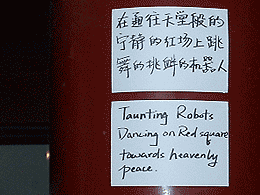 在通往天堂般的
宁静的红场上跳
舞的挑衅的机器人
Taunting Robots
Dancing on Red square
towards heavenly
peace.